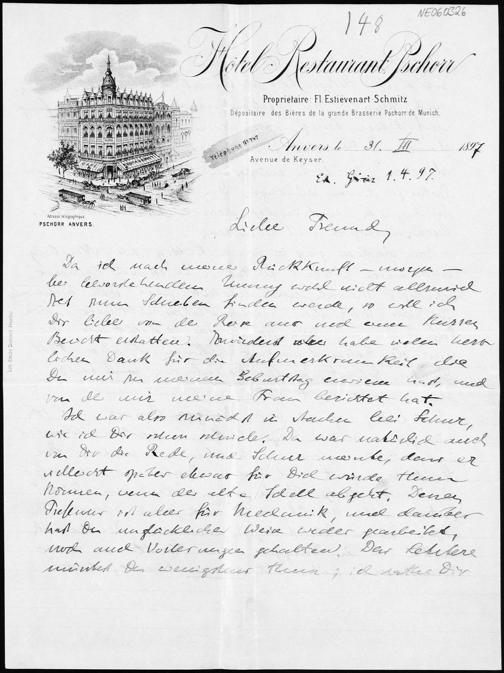 148
NE060326
Hôtel Restaurant Pschorr
Proprietaire Fl. Estievenart-Schmitz
Dépositaire des Bières de la grande Brasserie Pschorr de Munich.
Téléphone
Anvers le 31. III. 1897
Avenue de Keyser.
1.4.97.
Adresse télégraphique
PSCHORR ANVERS.
Lieber Freund,
Da ich nach meiner Rückkunft – morgen –
bei bevorstehendem Umzug wohl nicht allzuviel
Zeit zum Schreiben finden werde, so will ich
Dir lieber von der Reise aus noch einen kurzen
Bericht erstatten. Zunächst aber habe vielen herz-
lichen Dank für die Aufmerksamkeit die
Du mir zu meinem Geburtstag erwiesen hast, und
von der mir meine Frau berichtet hat.
Ich war also zunächst in Aachen bei Schur,
wie ich Dir schon schrieb. Da war natürlich auch
von Dir die Rede, und Schur meinte, dass er
vielleicht später etwas für Dich würde thun
können, wenn der alte abgeht. Dessen
Professur ist aber für Mechanik, und darüber
hast Du unglücklicher Weise weder gearbeitet,
noch auch Vorlesungen gehalten. Das letztere
müsstest Du wenigstens thun; ich Dir